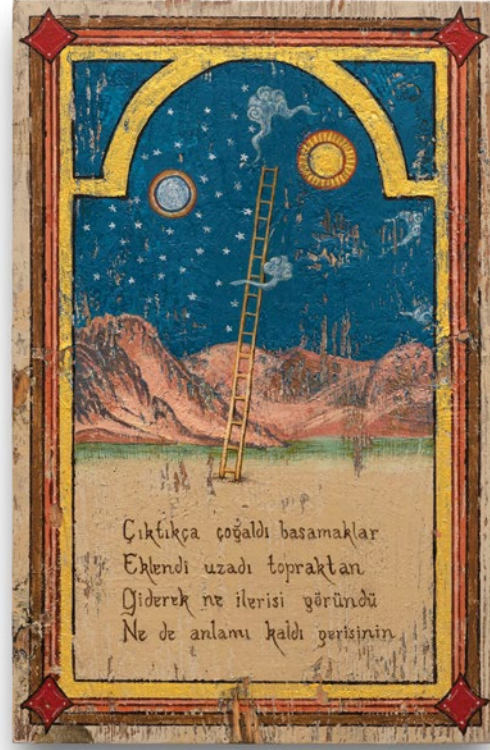 Çıktıkça çoğaldı basamaklar
Eklendi uzadı topraktan
Giderek ne ilerisi göründü
Ne de anlamı kaldı gerisinin